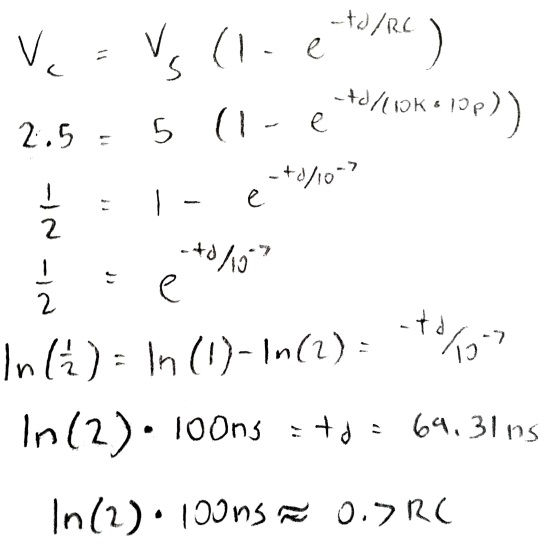 V_c = V_s (1 - e^{-td/RC})
2.5 = 5 (1 - e^{-td/(10K • 10p)})
1/2 = 1 - e^{-td/10^{-7}}
1/2 = e^{-td/10^{-7}}
ln(1/2) = ln(1) - ln(2) = -td/10^{-7}
ln(2) • 100ns = td = 69.31ns
ln(2) • 100ns ≈ 0.7RC